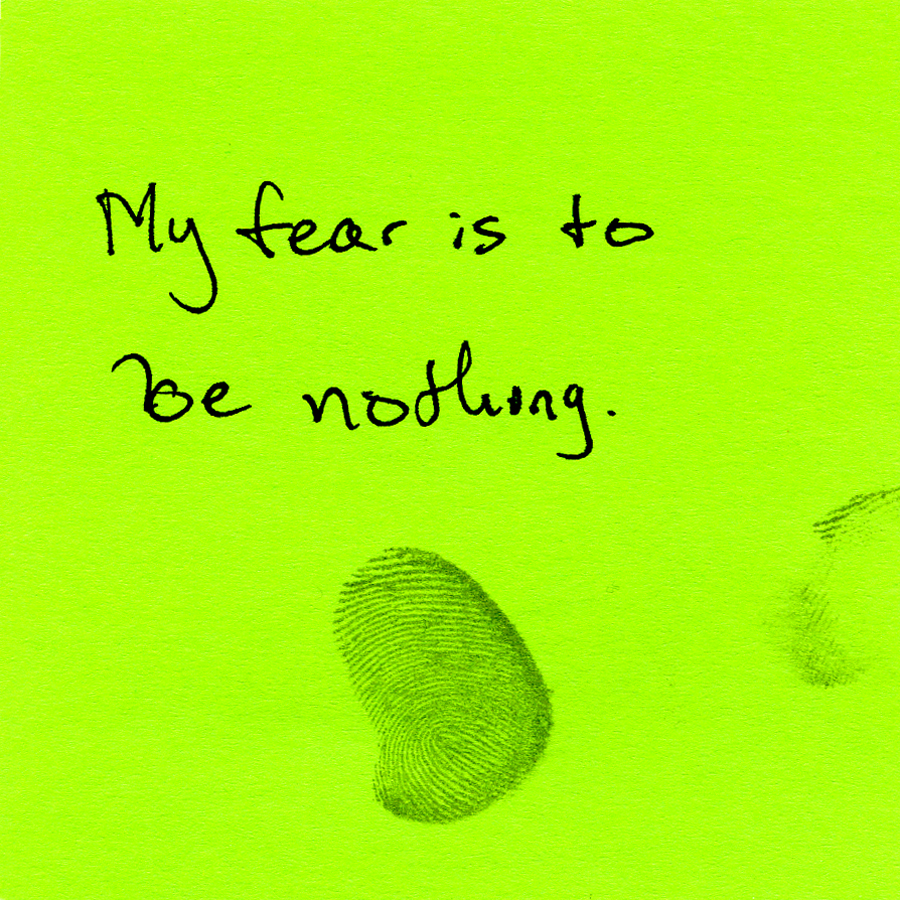 My fear is to
be nothing.